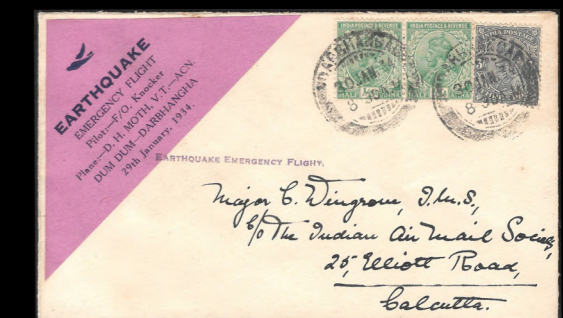 EARTHQUAKE
EMERGENCY FLIGHT
Pilot:—F/O. Knocker
Plane—D. H. MOTH, V. T.—ACN.
DUM DUM—DARBHANGA
29th January, 1934.
INDIA POSTAGE & REVENUE
INDIA POSTAGE & REVENUE
INDIA POSTAGE
DARBHANGA
JAN
EARTHQUAKE EMERGENCY FLIGHT,
Major C. Wingrove, I.M.S.,
C/o The Indian Air Mail Society,
25, Elliott Road,
Calcutta.